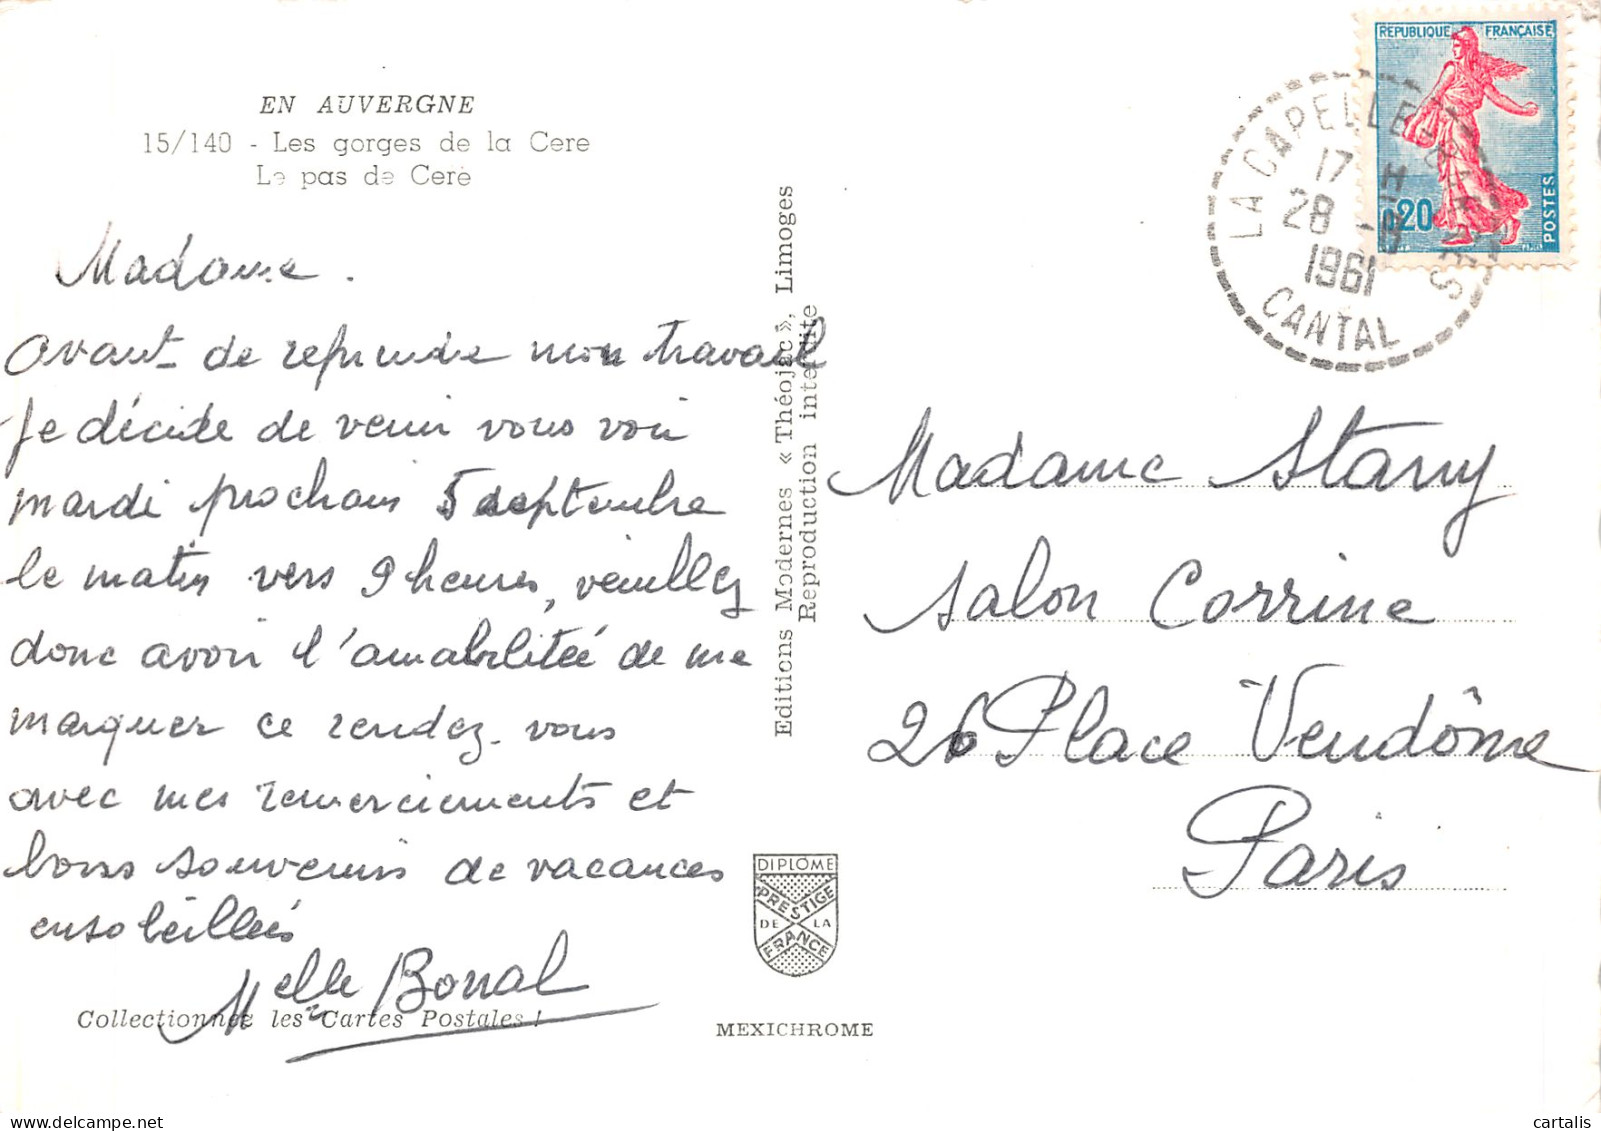 EN AUVERGNE
15/140 - Les gorges de la Cere
Le pas de Cère
Madame.
avant de reprendre mon travail
Je décide de venir vous voir
mardi prochain 5 septembre
le matin vers 9 heures, veuillez
donc avoir l'amabilitée de me
marquer ce rendez-vous
avec mes remerciements et
bons souvenirs de vacances
ensoleillées
Melle Bonal
Collectionnez les Cartes Postales !
Editions Modernes « Théojac », Limoges
Reproduction interdite
DIPLOME
PRESTIGE
DE LA
FRANCE
MEXICHROME
REPUBLIQUE FRANÇAISE
0,20
POSTES
LA CAPELLE
17 H
28 -8
1961
CANTAL
Madame Stany
Salon Corrine
26 Place Vendôme
Paris
cartalis.com